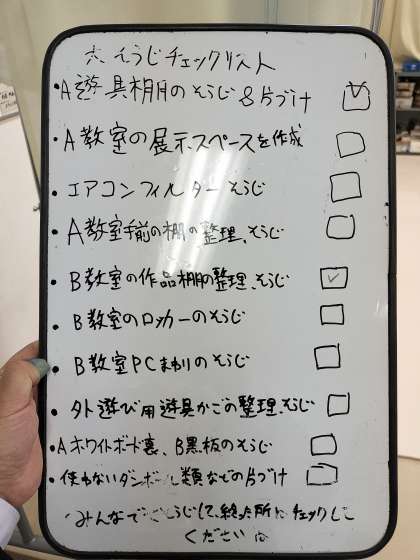 大そうじチェックリスト
・A遊具棚のそうじ&片づけ
・A教室の展示スペースを作成
・エアコンフィルターそうじ
・A教室手前の棚の整理、そうじ
・B教室の作品棚の整理、そうじ
・B教室のロッカーのそうじ
・B教室PCまわりのそうじ
・外遊び用遊具かごの整理、そうじ
・Aホワイトボード裏、B黒板のそうじ
・使わないダンボール類などの片づけ
みんなで そうじして、終った所にチェックして
ください